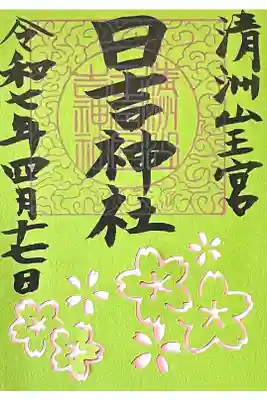 清洲山王宮
日吉神社
令和七年四月十七日